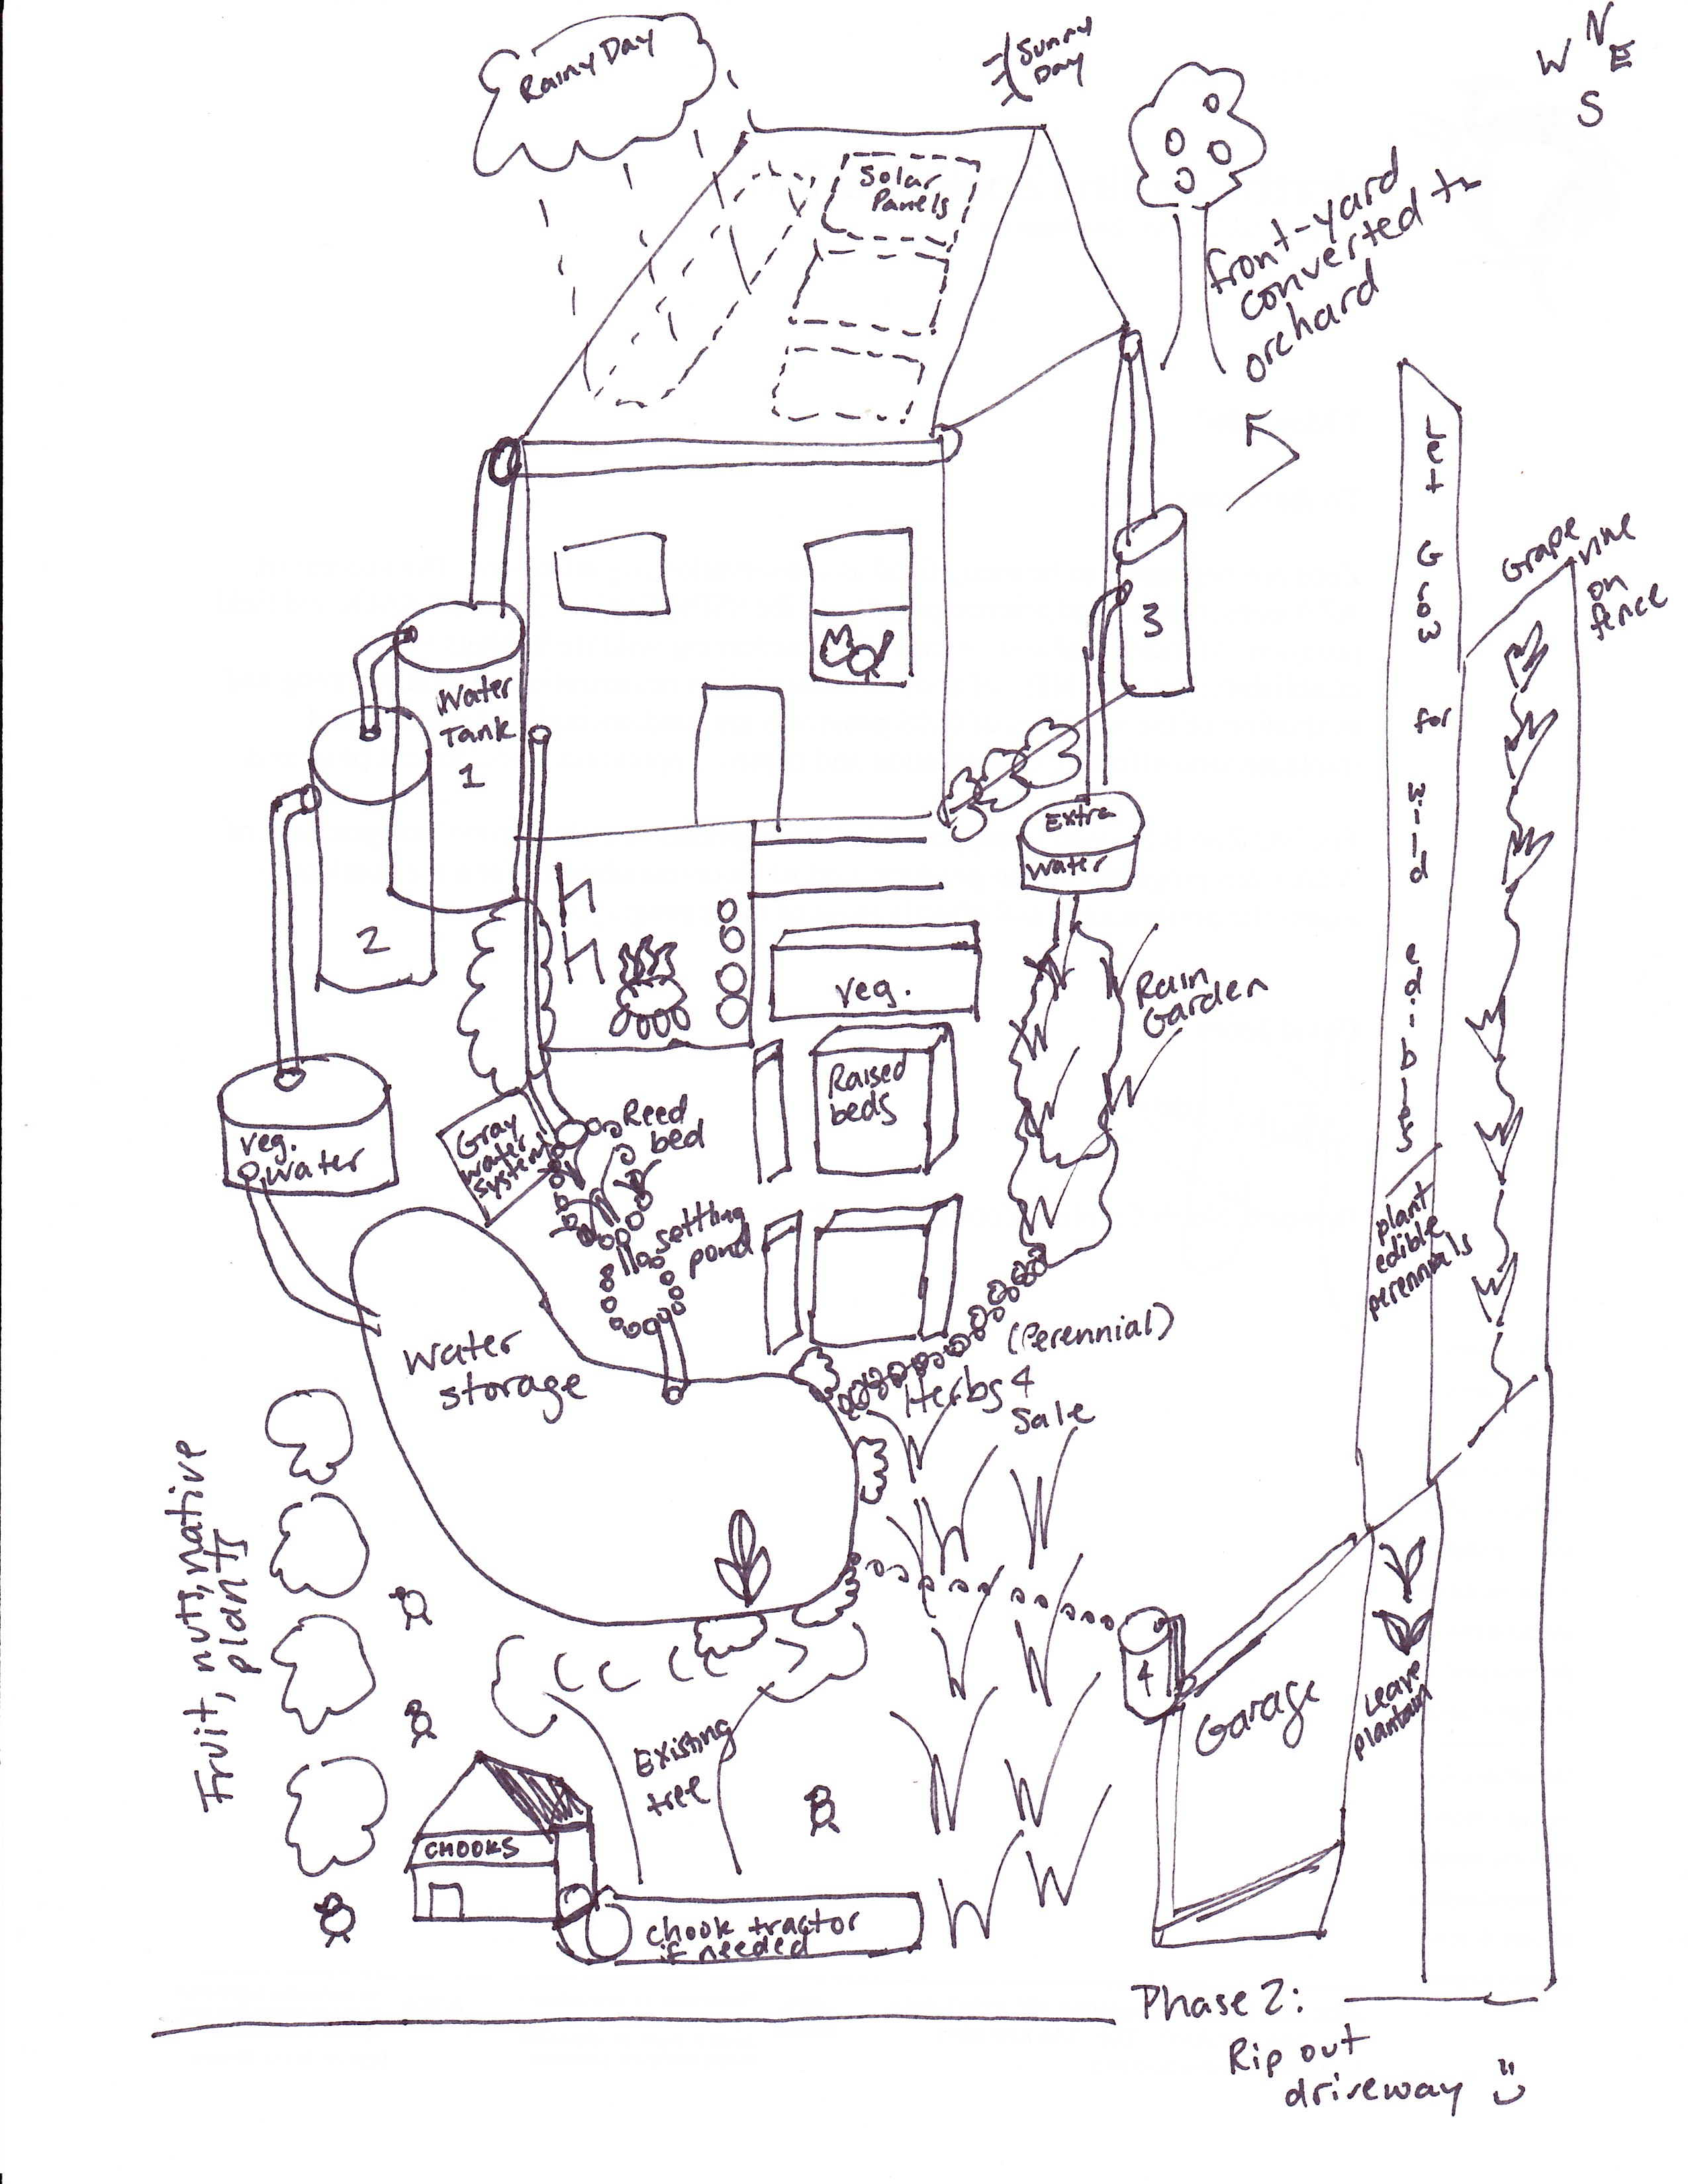 Rainy Day
Sunny
Day
N
W E
S
Solar
Panels
front-yard
converted to
orchard
Let Grow for wild edibles
Grape
vine
on
fence
Water
Tank
1
2
3
Extra
water
veg.
Rain
Garden
Raised
beds
veg.
water
Gray
water
system
Reed
bed
settling
pond
plant
edible
perennials
(Perennial)
Herbs 4
Sale
Water
storage
Fruit, nuts, native
plants
4
Garage
Leave
plantain
Existing
tree
CHOOKS
chook tractor
if needed
Phase 2:
Rip out
driveway